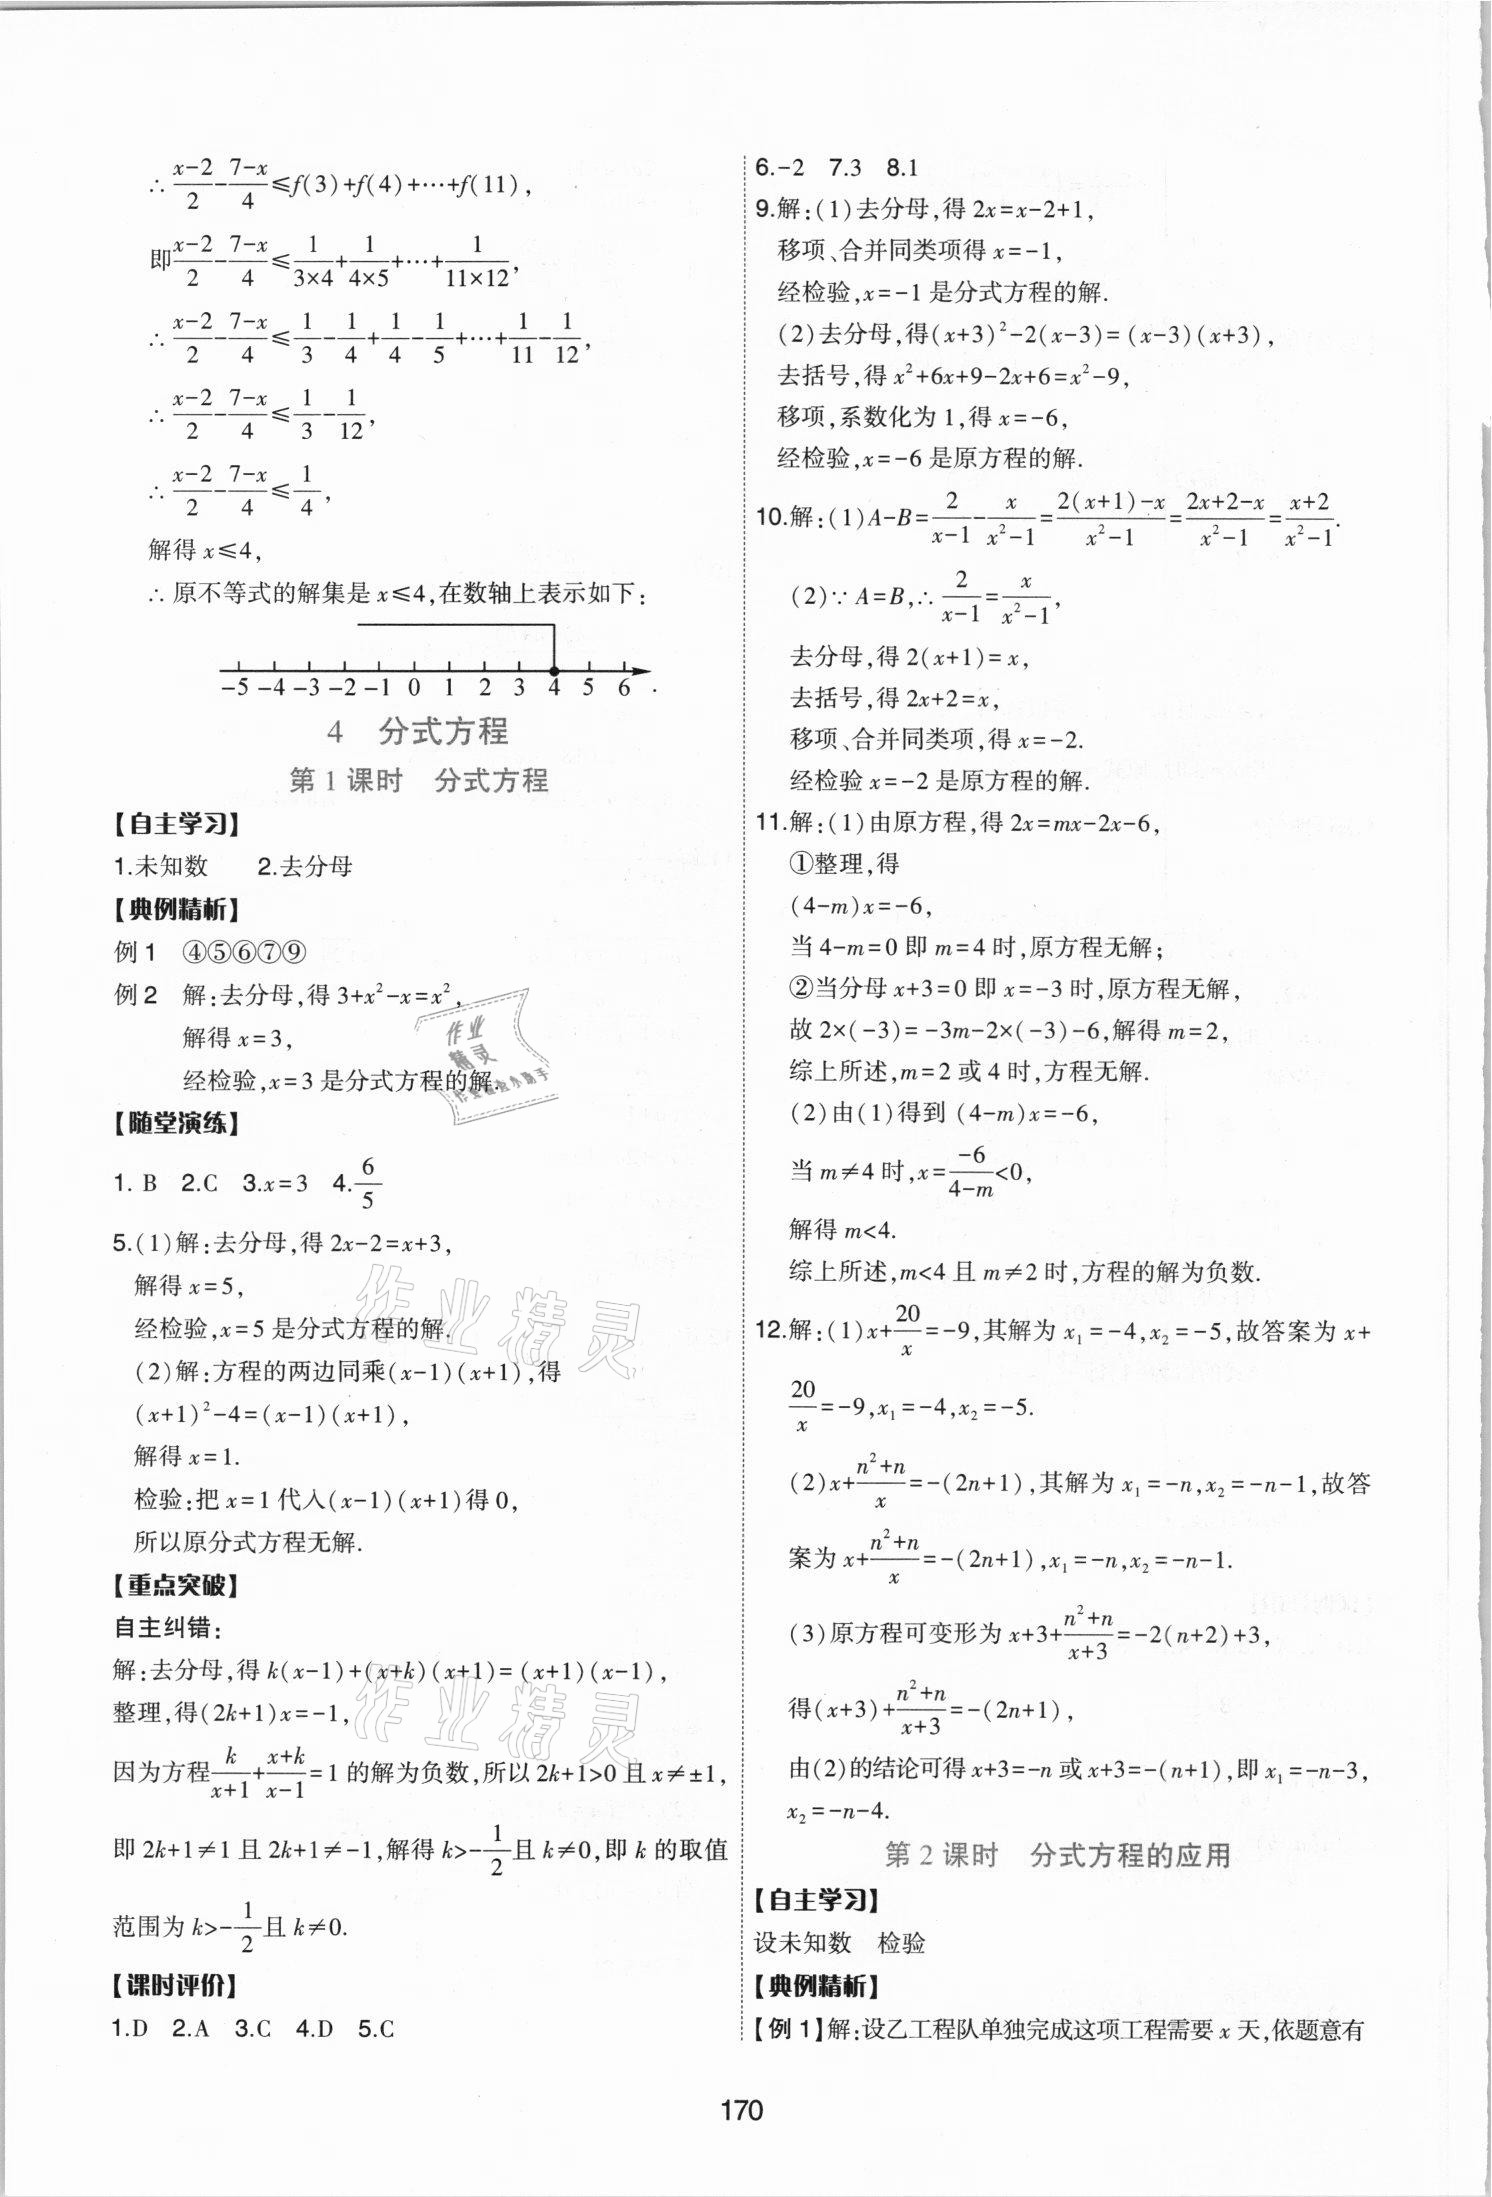 ∴ (x-2)/2-(7-x)/4≤f(3)+f(4)+⋯+f(11),
即(x-2)/2-(7-x)/4≤1/(3×4)+1/(4×5)+⋯+1/(11×12),
∴ (x-2)/2-(7-x)/4≤1/3-1/4+1/4-1/5+⋯+1/11-1/12,
∴ (x-2)/2-(7-x)/4≤1/3-1/12,
∴ (x-2)/2-(7-x)/4≤1/4,
解得 x≤4,
∴ 原不等式的解集是 x≤4,在数轴上表示如下:
-5 -4 -3 -2 -1 0 1 2 3 4 5 6 .
4 分式方程
第 1 课时 分式方程
【自主学习】
1.未知数 2.去分母
【典例精析】
例 1 ④⑤⑥⑦⑨
例 2 解:去分母,得 3+x²-x=x²,
解得 x=3,
经检验,x=3 是分式方程的解.
【随堂演练】
1. B 2.C 3.x=3 4.6/5
5.(1)解:去分母,得 2x-2=x+3,
解得 x=5,
经检验,x=5 是分式方程的解.
(2)解:方程的两边同乘(x-1)(x+1),得
(x+1)²-4=(x-1)(x+1),
解得 x=1.
检验:把 x=1 代入(x-1)(x+1)得 0,
所以原分式方程无解.
【重点突破】
自主纠错:
解:去分母,得 k(x-1)+(x+k)(x+1)=(x+1)(x-1),
整理,得(2k+1)x=-1,
因为方程k/(x+1)+(x+k)/(x-1)=1 的解为负数,所以 2k+1>0 且 x≠±1,
即 2k+1≠1 且 2k+1≠-1,解得 k>-1/2且 k≠0,即 k 的取值
范围为 k>-1/2且 k≠0.
【课时评价】
1.D 2.A 3.C 4.D 5.C
6.-2 7.3 8.1
9.解:(1)去分母,得 2x=x-2+1,
移项、合并同类项得 x=-1,
经检验,x=-1 是分式方程的解.
(2)去分母,得(x+3)²-2(x-3)=(x-3)(x+3),
去括号,得 x²+6x+9-2x+6=x²-9,
移项,系数化为 1,得 x=-6,
经检验,x=-6 是原方程的解.
10.解:(1)A-B=2/(x-1)-x/(x²-1)=(2(x+1)-x)/(x²-1)=(2x+2-x)/(x²-1)=(x+2)/(x²-1).
(2)∵ A=B,∴ 2/(x-1)=x/(x²-1),
去分母,得 2(x+1)=x,
去括号,得 2x+2=x,
移项、合并同类项,得 x=-2.
经检验 x=-2 是原方程的解.
11.解:(1)由原方程,得 2x=mx-2x-6,
①整理,得
(4-m)x=-6,
当 4-m=0 即 m=4 时,原方程无解;
②当分母 x+3=0 即 x=-3 时,原方程无解,
故 2×(-3)=-3m-2×(-3)-6,解得 m=2,
综上所述,m=2 或 4 时,方程无解.
(2)由(1)得到 (4-m)x=-6,
当 m≠4 时,x=-6/(4-m)<0,
解得 m<4.
综上所述,m<4 且 m≠2 时,方程的解为负数.
12.解:(1)x+20/x=-9,其解为 x₁=-4,x₂=-5,故答案为 x+
20/x=-9,x₁=-4,x₂=-5.
(2)x+(n²+n)/x=-(2n+1),其解为 x₁=-n,x₂=-n-1,故答
案为 x+(n²+n)/x=-(2n+1),x₁=-n,x₂=-n-1.
(3)原方程可变形为 x+3+(n²+n)/(x+3)=-2(n+2)+3,
得(x+3)+(n²+n)/(x+3)=-(2n+1),
由(2)的结论可得 x+3=-n 或 x+3=-(n+1),即 x₁=-n-3,
x₂=-n-4.
第 2 课时 分式方程的应用
【自主学习】
设未知数 检验
【典例精析】
【例 1】解:设乙工程队单独完成这项工程需要 x 天,依题意有
170
作业
精灵
作业精灵
作业精灵